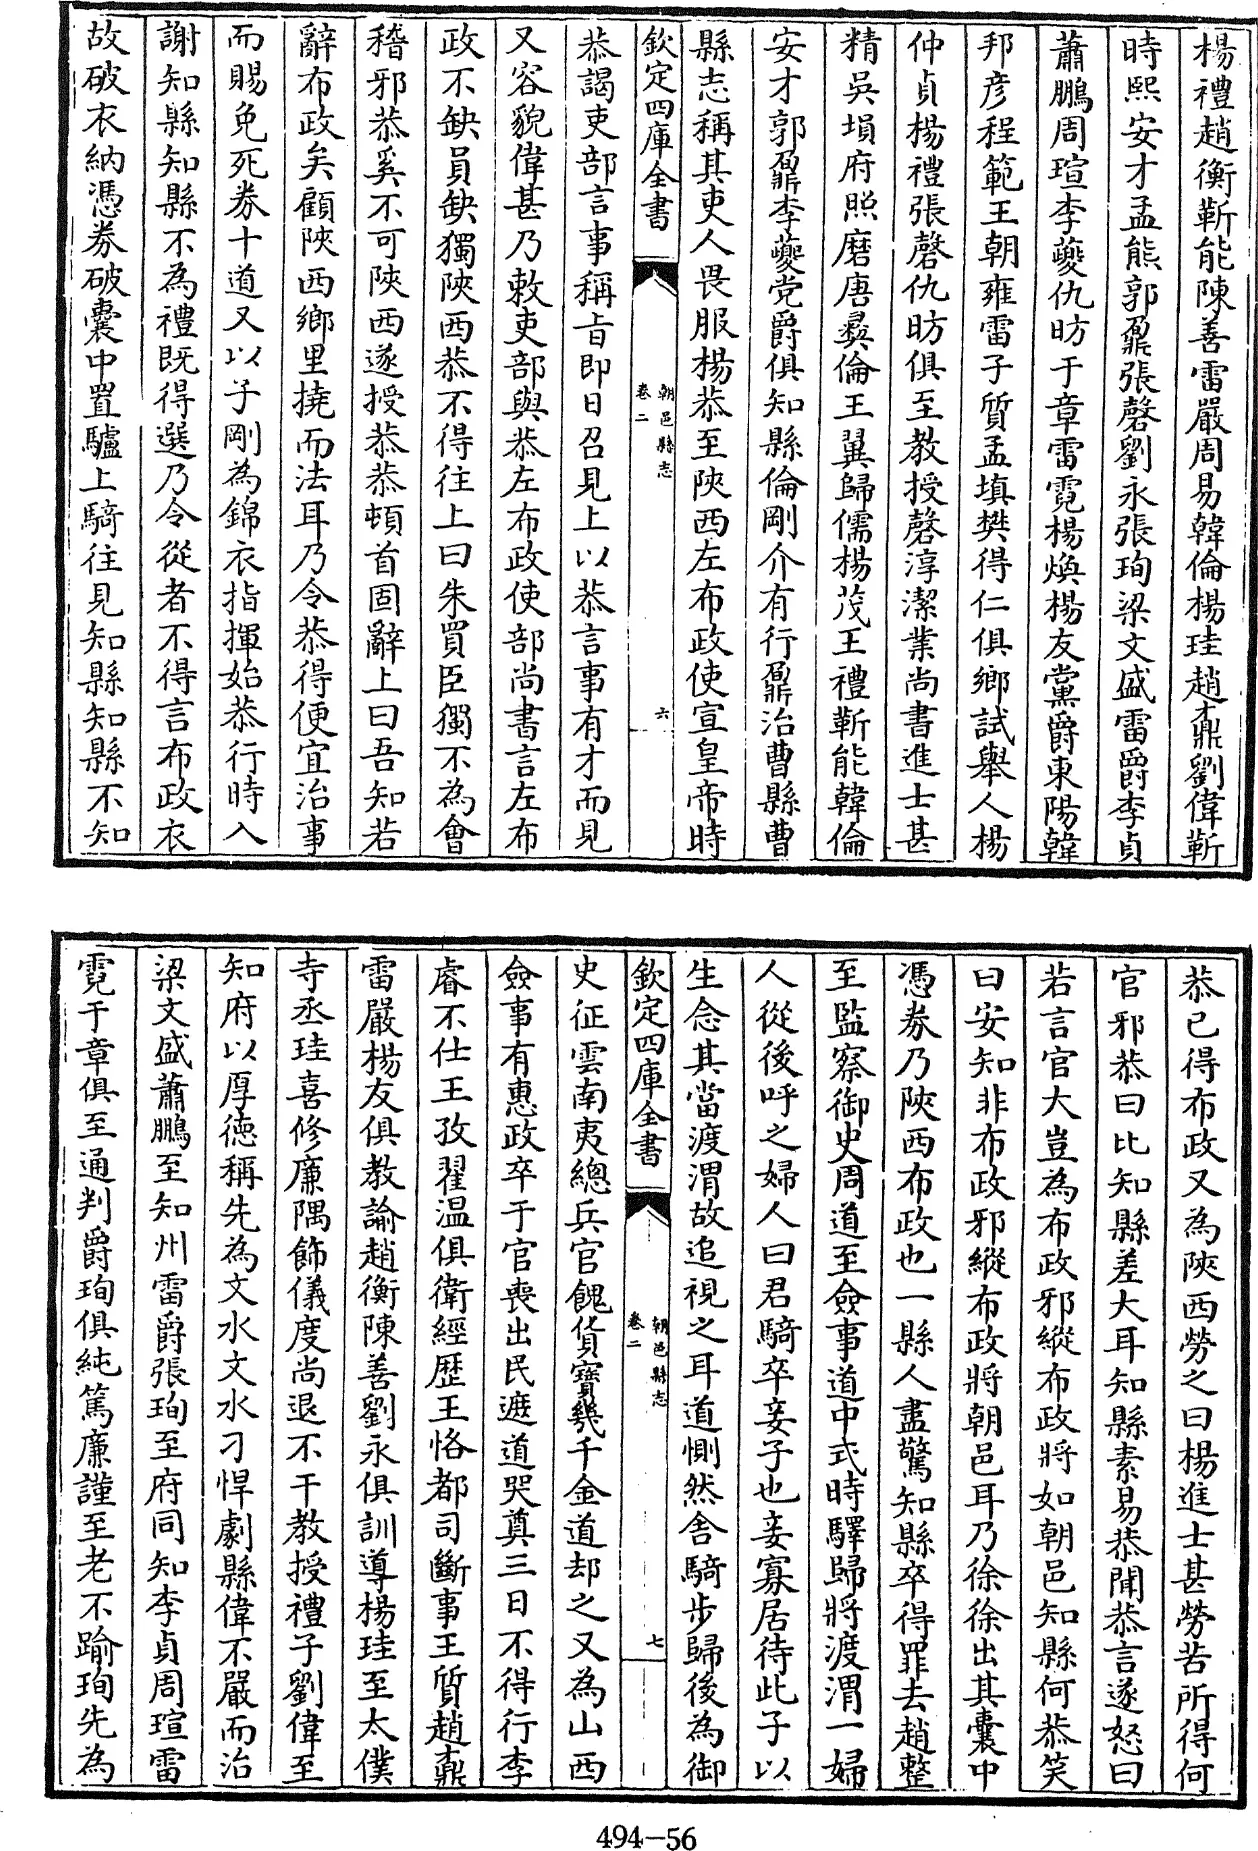 楊禮趙衡靳能陳善雷嚴周易韓倫楊珪趙鼒劉偉靳
時熙安才孟熊郭鼐張磬劉永張珣梁文盛雷爵李貞
蕭鵬周瑄李夔仇昉于章雷霓楊煥楊友黨爵東陽韓
邦彦程範王朝雍雷子質孟填樊得仁俱鄉試舉人楊
仲貞楊禮張磬仇昉俱至教授磬淳潔業尚書進士甚
精吳塤府照磨唐彛倫王翼歸儒楊茂王禮靳能韓倫
安才郭鼐李夔党爵俱知縣倫剛介有行鼐治曹縣曹
縣志稱其吏人畏服楊恭至陜西左布政使宣皇帝時
欽定四庫全書
朝邑縣志
卷二
六
恭謁吏部言事稱旨即日召見上以恭言事有才而見
又容貌偉甚乃敕吏部與恭左布政使部尚書言左布
政不缺員缺獨陜西恭不得往上曰朱買臣獨不為會
稽邪恭奚不可陜西遂授恭恭頓首固辭上曰吾知若
辭布政矣顧陜西鄉里撓而法耳乃令恭得便宜治事
而賜免死券十道又以子剛為錦衣指揮始恭行時入
謝知縣知縣不為禮既得選乃令從者不得言布政衣
故破衣納憑券破囊中置驢上騎往見知縣知縣不知
恭已得布政又為陜西勞之曰楊進士甚勞苦所得何
官邪恭曰比知縣差大耳知縣素易恭聞恭言遂怒曰
若言官大豈為布政邪縱布政將如朝邑知縣何恭笑
曰安知非布政邪縱布政將朝邑耳乃徐徐出其囊中
憑券乃陜西布政也一縣人盡驚知縣卒得罪去趙整
至監察御史周道至僉事道中式時驛歸將渡渭一婦
人從後呼之婦人曰君騎卒妾子也妾寡居待此子以
生念其當渡渭故追視之耳道惻然舍騎步歸後為御
欽定四庫全書
朝邑縣志
卷二
七
史征雲南夷總兵官餽貨寶幾千金道却之又為山西
僉事有惠政卒于官喪出民遮道哭奠三日不得行李
睿不仕王孜翟温俱衛經歴王恪都司斷事王質趙鼒
雷嚴楊友俱教諭趙衡陳善劉永俱訓導楊珪至太僕
寺丞珪喜修廉隅飾儀度尚退不干教授禮子劉偉至
知府以厚德稱先為文水文水刁悍劇縣偉不嚴而治
梁文盛蕭鵬至知州雷爵張珣至府同知李貞周瑄雷
霓于章俱至通判爵珣俱純篤廉謹至老不踰珣先為
494-56